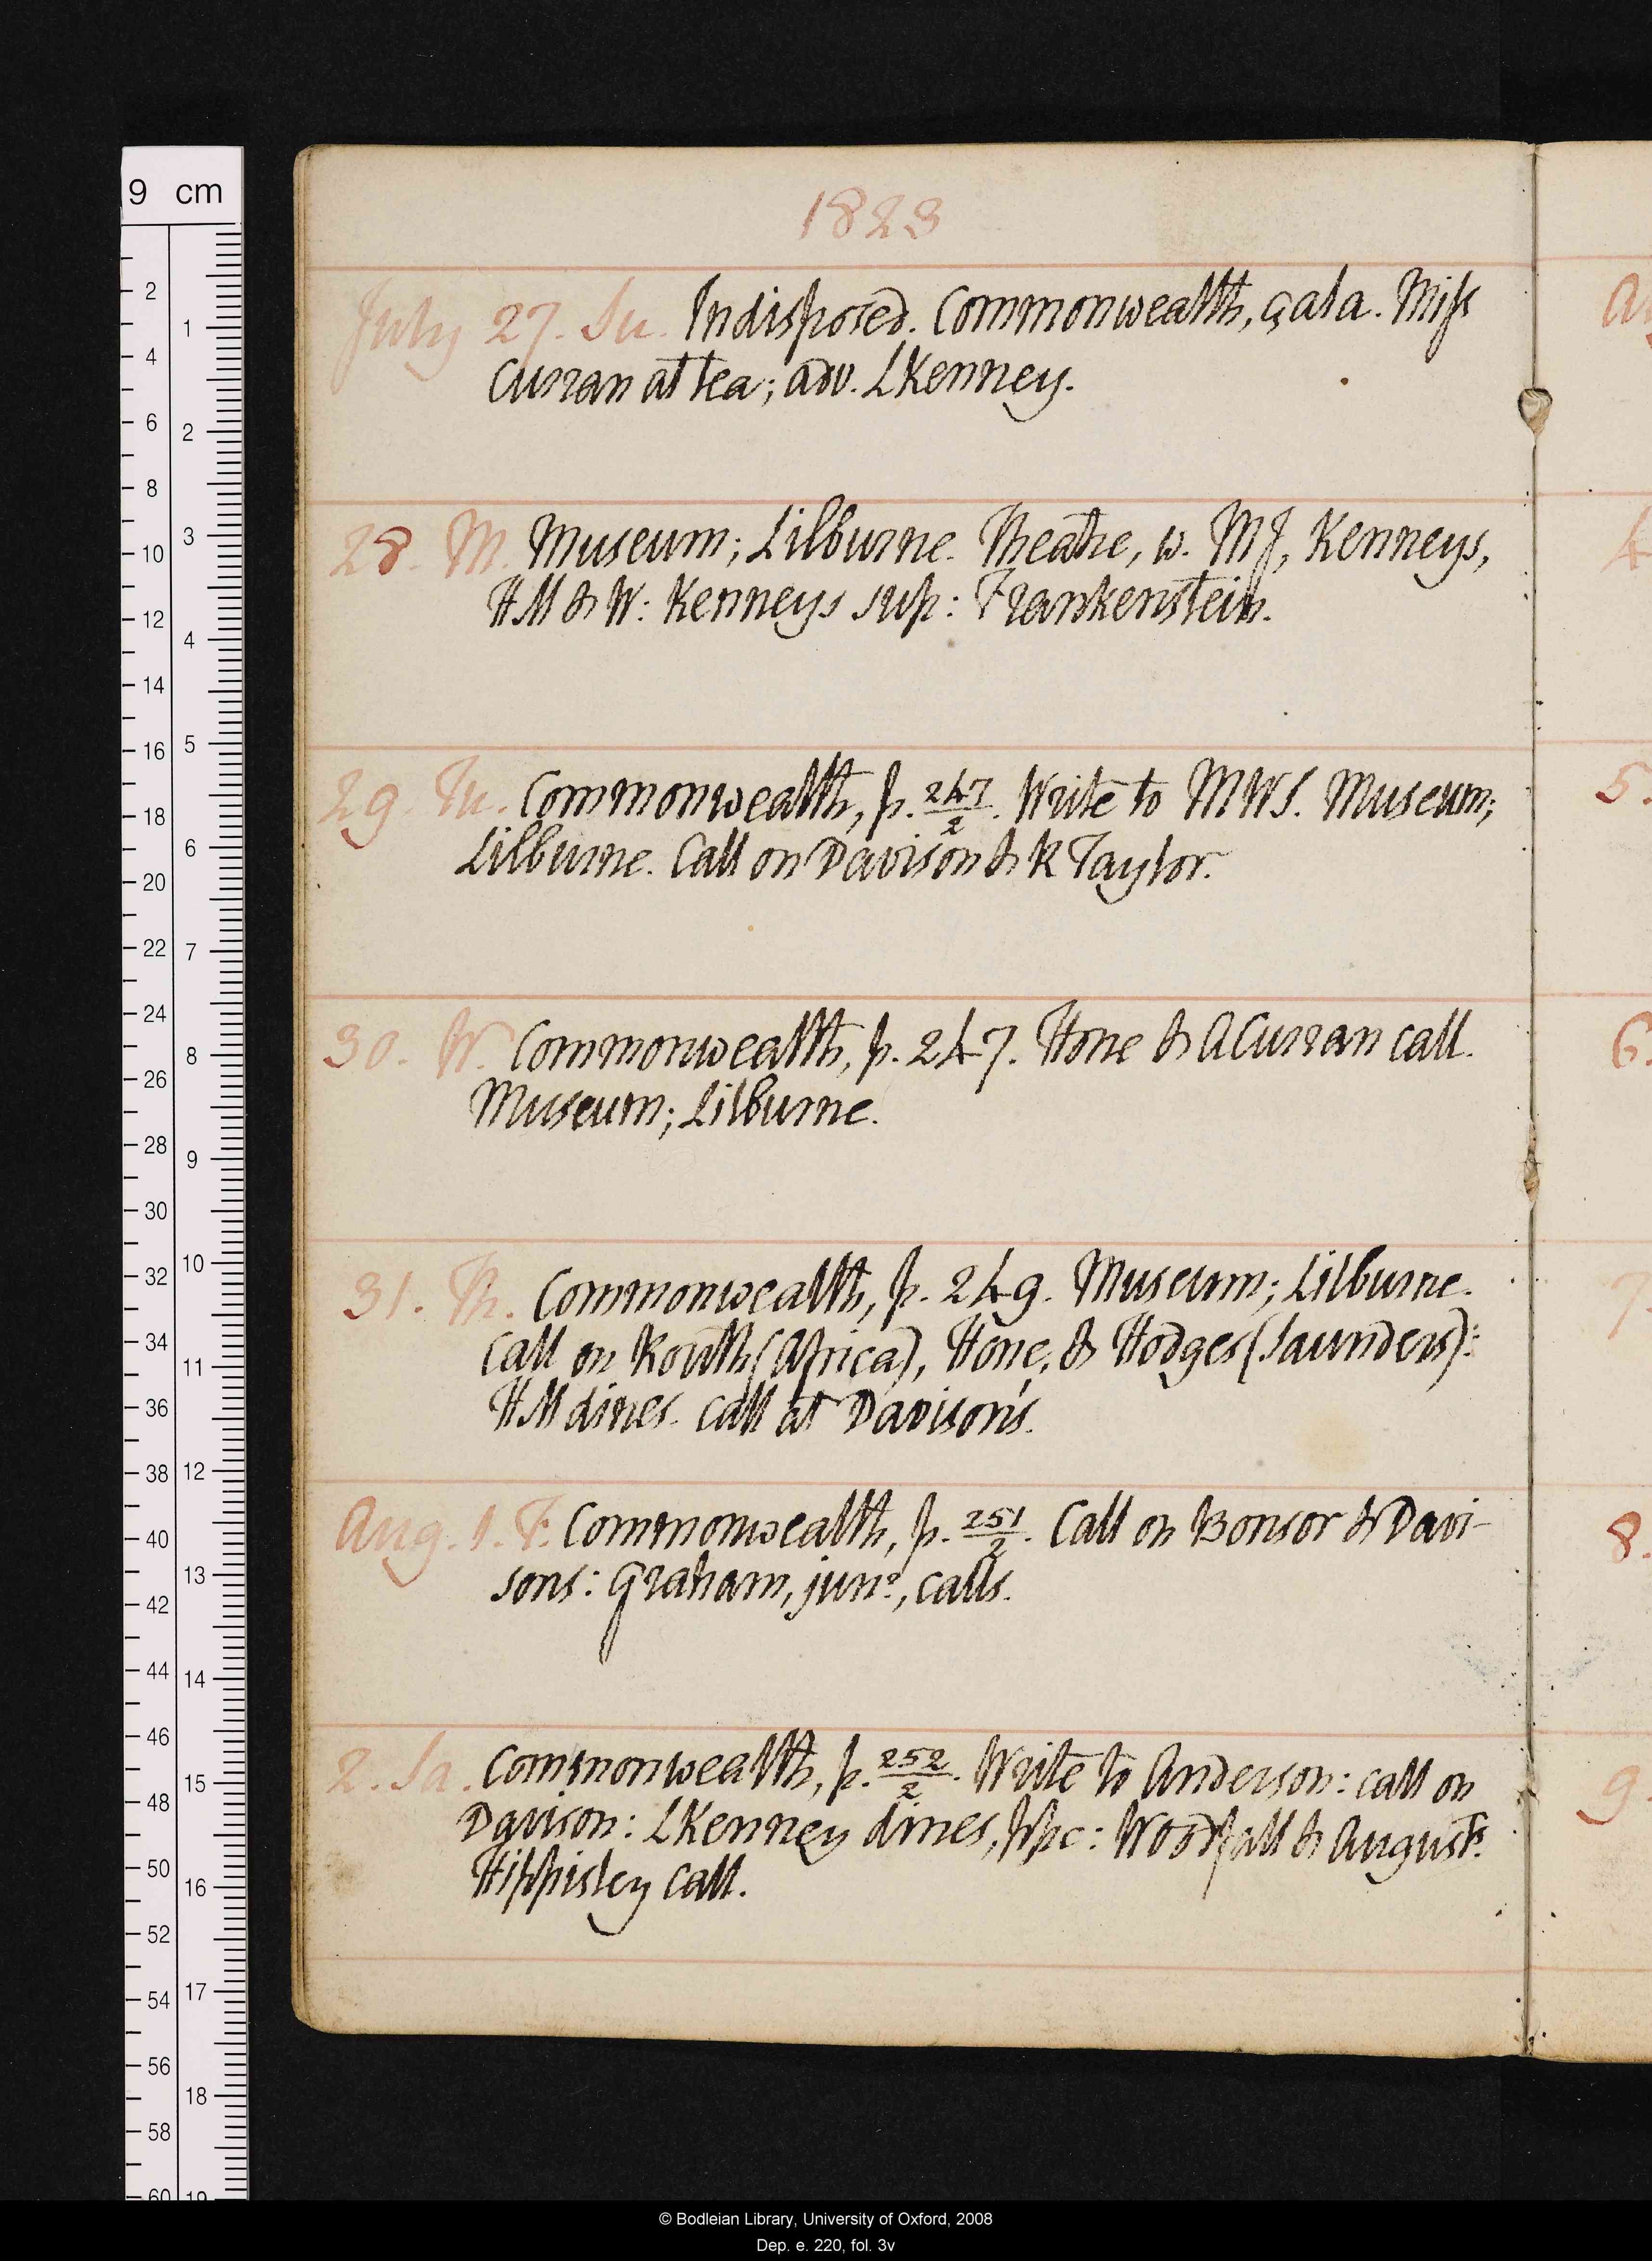 1823
July 27. Su. Indisposed. Commonwealth, çala. Miss
Curran at tea; adv. LKenney.
28. M. Museum; Lilburne. Theatre, w. MJ, Kenneys,
HM & W: Kenneys sup: Frankenstein.
29. Tu. Commonwealth, p. 247/2. Write to MWS. Museum;
Lilburne. Call on Davison & R Taylor.
30. W. Commonwealth, p. 247. Hone & A Curran call.
Museum; Lilburne.
31. Th. Commonwealth, p. 249. Museum; Lilburne.
Call on Routh (Africa), Hone, & Hodges (Saunders):
HM dines. call at Davison's.
Aug. 1. F. Commonwealth, p. 251/2. Call on Bonsor & Davi-
sons: Graham, junr., calls.
2. Sa. Commonwealth, p. 252/2. Write to Anderson: call on
Davison: LKenney dines, ppc: Woodfall & August:
Hippisley call.
4
5.
6.
7
8.
9.
9 cm
2
4
6
8
10
12
14
16
18
20
22
24
26
28
30
32
34
36
38
40
42
44
46
48
50
52
54
56
58
60
1
2
3
4
5
6
7
8
9
10
11
12
13
14
15
16
17
18
19
© Bodleian Library, University of Oxford, 2008
Dep. e. 220, fol. 3v